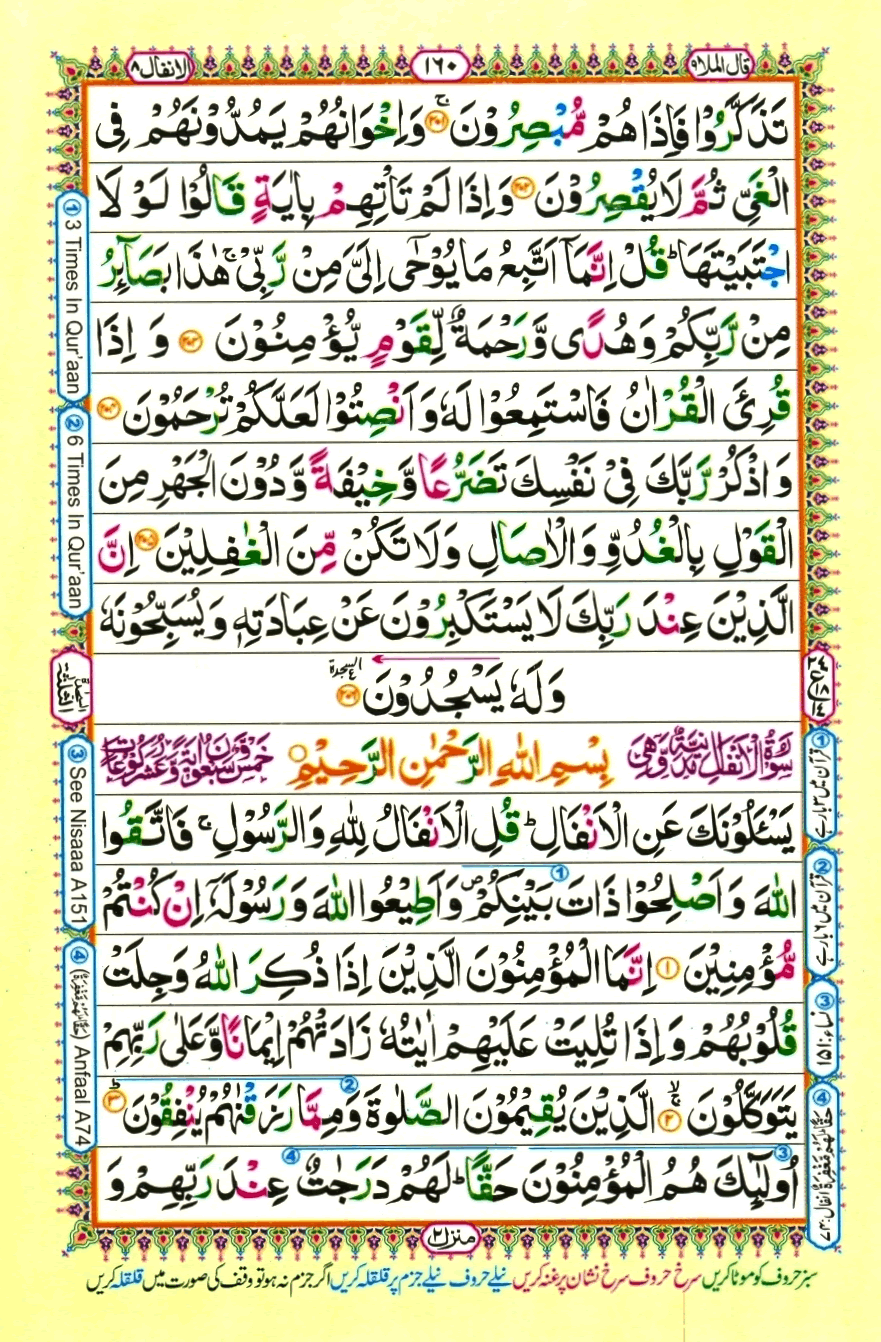 قال الملا ٩
١٦٠
الانفال ٨
تَذَكَّرُوْا فَاِذَا هُمْ مُّبْصِرُوْنَ ۚ‏﴿۲۰۱﴾ وَاِخْوَانُهُمْ يَمُدُّوْنَهُمْ فِى
الْغَىِّ ثُمَّ لَا يُقْصِرُوْنَ ﴿۲۰۲﴾ وَاِذَا لَمْ تَاْتِهِمْ بِاٰيَةٍ قَالُوْا لَوْ لَا
اجْتَبَيْتَهَا ؕ قُلْ اِنَّمَاۤ اَتَّبِعُ مَا يُوْحٰٓى اِلَىَّ مِنْ رَّبِّىْ ۚ هٰذَا بَصَآئِرُ
مِنْ رَّبِّكُمْ وَهُدًى وَّرَحْمَةٌ لِّقَوْمٍ يُّؤْمِنُوْنَ ﴿۲۰۳﴾ وَ اِذَا
قُرِئَ الْقُرْاٰنُ فَاسْتَمِعُوْا لَهٗ وَاَنْصِتُوْا لَعَلَّكُمْ تُرْحَمُوْنَ ﴿۲۰۴﴾
وَاذْكُرْ رَّبَّكَ فِىْ نَفْسِكَ تَضَرُّعًا وَّخِيْفَةً وَّدُوْنَ الْجَهْرِ مِنَ
الْقَوْلِ بِالْغُدُوِّ وَالْاٰصَالِ وَلَا تَكُنْ مِّنَ الْغٰفِلِيْنَ ﴿۲۰۵﴾ اِنَّ
الَّذِيْنَ عِنْدَ رَبِّكَ لَا يَسْتَكْبِرُوْنَ عَنْ عِبَادَتِهٖ وَيُسَبِّحُوْنَهٗ
وَلَهٗ يَسْجُدُوْنَ ﴿۲۰۶﴾ السجدة
سُوْرَةُ الْاَنْفَالِ مَدَنِيَّةٌ وَّهِىَ بِسْمِ اللّٰهِ الرَّحْمٰنِ الرَّحِيْمِ خَمْسٌ وَّسَبْعُوْنَ اٰيَةً وَّعَشْرُ رُكُوْعَاتٍ
يَسْـَٔلُوْنَكَ عَنِ الْاَنْفَالِ ؕ قُلِ الْاَنْفَالُ لِلّٰهِ وَالرَّسُوْلِ ۚ فَاتَّقُوا
اللّٰهَ وَاَصْلِحُوْا ذَاتَ بَيْنِكُمْ ۪ وَاَطِيْعُوا اللّٰهَ وَرَسُوْلَهٗۤ اِنْ كُنْتُمْ
مُّؤْمِنِيْنَ ﴿۱﴾ اِنَّمَا الْمُؤْمِنُوْنَ الَّذِيْنَ اِذَا ذُكِرَ اللّٰهُ وَجِلَتْ
قُلُوْبُهُمْ وَاِذَا تُلِيَتْ عَلَيْهِمْ اٰيٰتُهٗ زَادَتْهُمْ اِيْمَانًا وَّعَلٰى رَبِّهِمْ
يَتَوَكَّلُوْنَ ﴿۲﴾ الَّذِيْنَ يُقِيْمُوْنَ الصَّلٰوةَ وَمِمَّا رَزَقْنٰهُمْ يُنْفِقُوْنَ ؕ﴿۳﴾
اُولٰٓئِكَ هُمُ الْمُؤْمِنُوْنَ حَقًّا ؕ لَهُمْ دَرَجٰتٌ عِنْدَ رَبِّهِمْ وَ
منزل ٢
سبز حروف کو موٹا کریں سرخ حروف سرخ نشان پر غنہ کریں نیلے حروف نیلے جزم پر قلقلہ کریں اگر جزم نہ ہو تو وقف کی صورت میں قلقلہ کریں
① 3 Times In Qur'aan
② 6 Times In Qur'aan
③ See Nisaaa A151
④ (حَقًّا لَهُمْ مَّغْفِرَةٌ) Anfaal A74
① قرآن میں ۳ بار ہے
② قرآن میں ۶ بار ہے
③ نساء: ۱۵۱
④ حَقًّا لَهُمْ مَّغْفِرَةٌ انفال: ۷۴